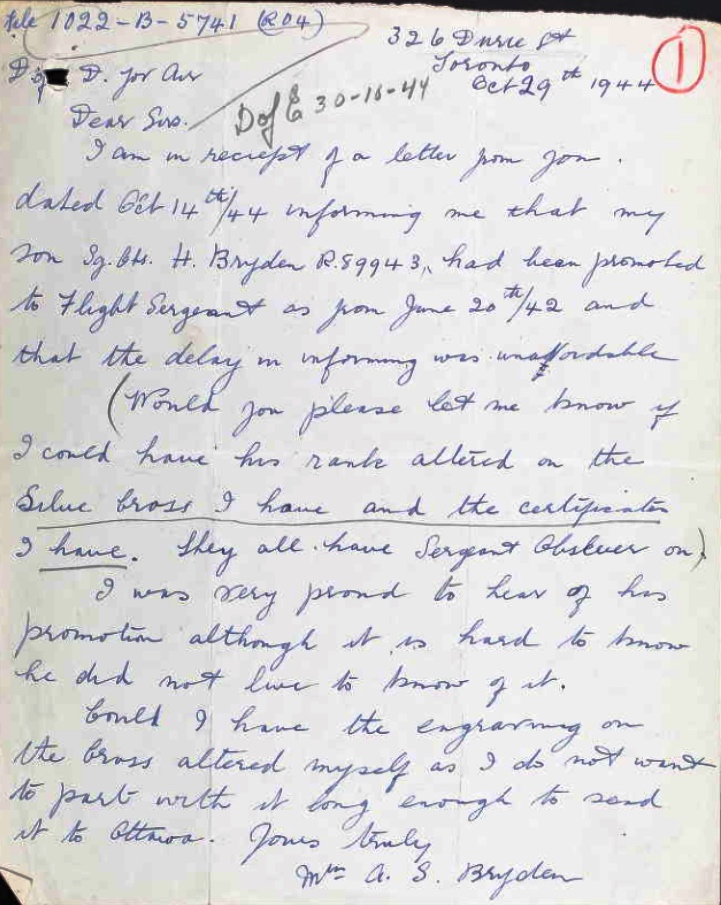 File 1022-B-5741 (R04)
326 Durie St
Toronto
Oct 29th 1944
1
D. of D. for Air
D of E 30-10-44
Dear Sirs.
I am in reciept of a letter from you.
dated Oct 14th/44 informing me that my
son Sg. Obs. H. Bryden R.89943, had been promoted
to Flight Sergeant as from June 20th/42 and
that the delay in informing was unaffordable
(Would you please let me know if
I could have his rank altered on the
Silver Cross I have and the certificates
I have. They all have Sergeant Observer on)
I was very proud to hear of his
promotion although it is hard to know
he did not live to know of it.
Could I have the engraving on
the Cross altered myself as I do not want
to part with it long enough to send
it to Ottawa. Yours truly
Mrs A. S. Bryden